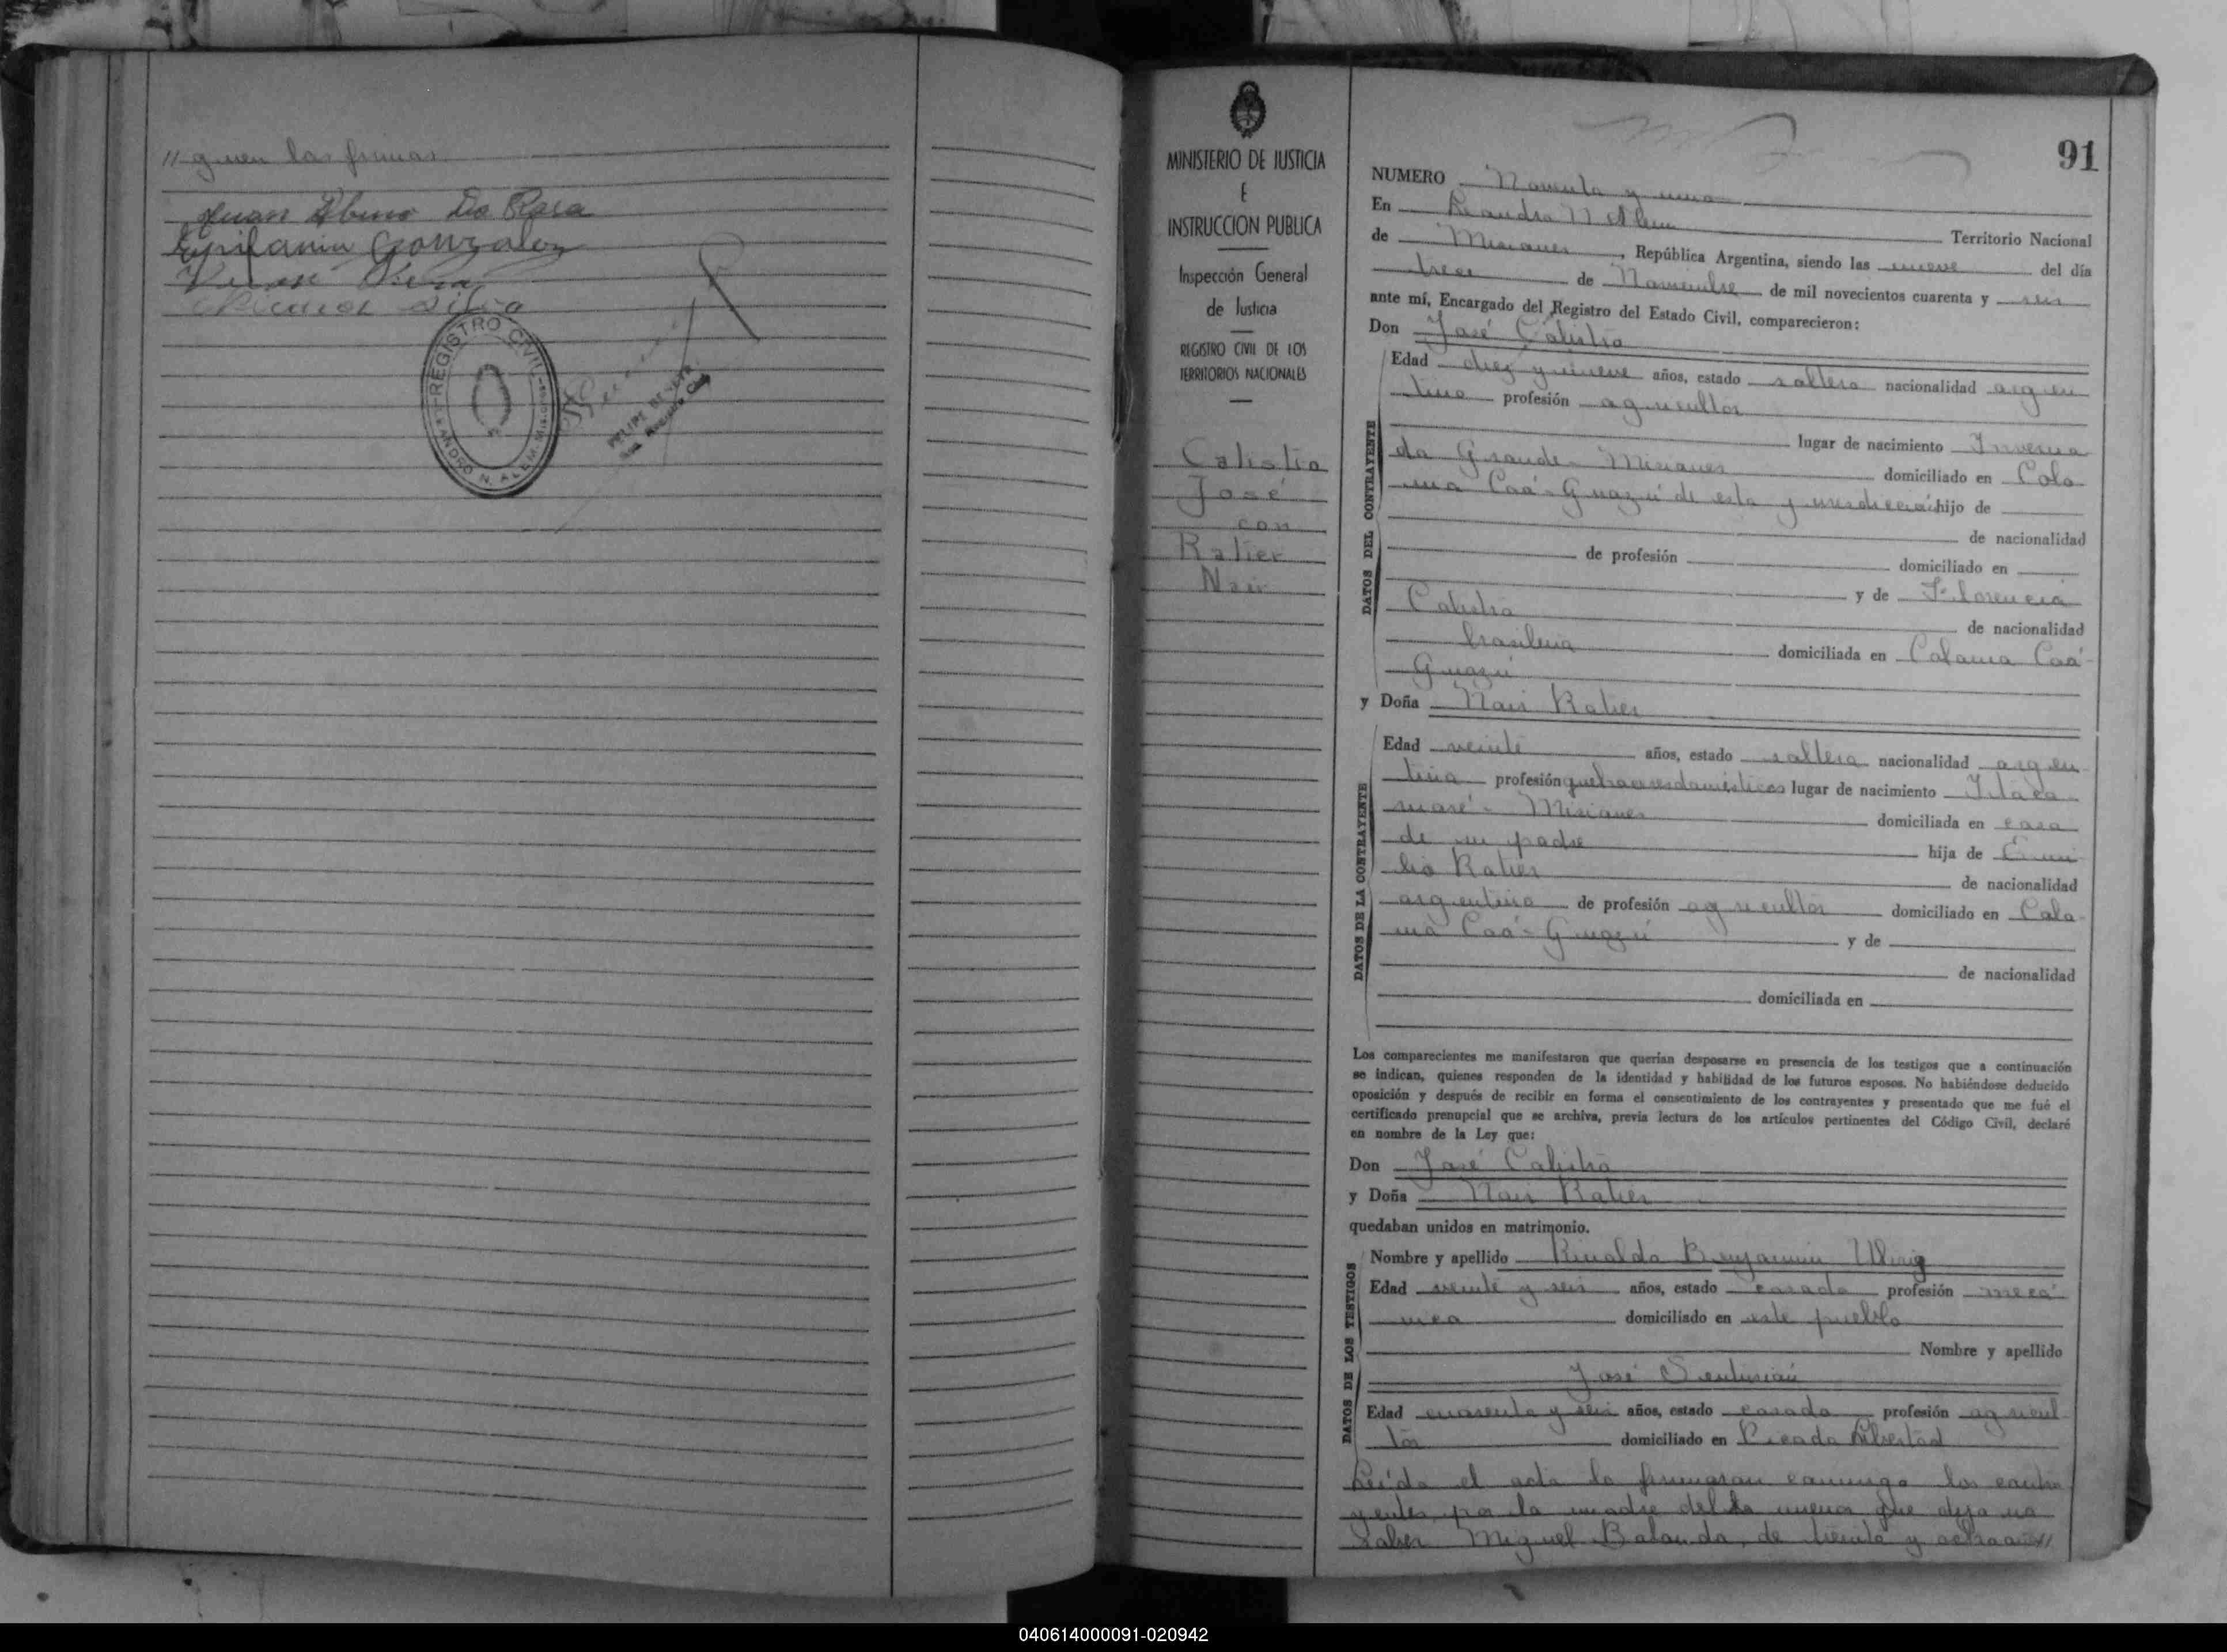 //guen las firmas
Juan Albino Da Rosa
Epifanio Gonzalez
REGISTRO CIVIL
LEANDRO N. ALEM - MISIONES
MINISTERIO DE JUSTICIA
E
INSTRUCCION PUBLICA
Inspección General
de Justicia
REGISTRO CIVIL DE LOS
TERRITORIOS NACIONALES
Calistro
José
con
Ratier
Nair
91
NUMERO Noventa y uno
En Leandro N. Alem Territorio Nacional
de Misiones, República Argentina, siendo las nueve del día
trece de Noviembre de mil novecientos cuarenta y seis
ante mí, Encargado del Registro del Estado Civil, comparecieron:
Don José Calistro
DATOS DEL CONTRAYENTE
Edad diez y nueve años, estado soltero nacionalidad argen
tino profesión agricultor
lugar de nacimiento Inverna
da Grande - Misiones domiciliado en Colo
nia Caá-Guazú de esta jurisdicción hijo de
de nacionalidad
de profesión domiciliado en
y de Florencia
Calistro de nacionalidad
brasilera domiciliada en Colonia Caá-
Guazú
y Doña Nair Ratier
DATOS DE LA CONTRAYENTE
Edad veinte años, estado soltera nacionalidad argen
tina profesión quehaceres domésticos lugar de nacimiento Itaca
ruaré - Misiones domiciliada en casa
de su padre hija de Emi
lio Ratier de nacionalidad
argentino de profesión agricultor domiciliado en Colo
nia Caá-Guazú y de
de nacionalidad
domiciliada en
Los comparecientes me manifestaron que querían desposarse en presencia de los testigos que a continuación
se indican, quienes responden de la identidad y habilidad de los futuros esposos. No habiéndose deducido
oposición y después de recibir en forma el consentimiento de los contrayentes y presentado que me fué el
certificado prenupcial que se archiva, previa lectura de los artículos pertinentes del Código Civil, declaré
en nombre de la Ley que:
Don José Calistro
y Doña Nair Ratier
quedaban unidos en matrimonio.
DATOS DE LOS TESTIGOS
Nombre y apellido Rinaldo Benjamin Uhrig
Edad veinte y seis años, estado casado profesión mecá
nico domiciliado en este pueblo
Nombre y apellido
José
Edad cuarenta y seis años, estado casado profesión agricul
tor domiciliado en Picada Libertad
Leída el acta la firmaron conmigo los contra
yentes, por la madre del menor que dijo no
saber Miguel Balanda, de treinta y ocho años//
040614000091-020942